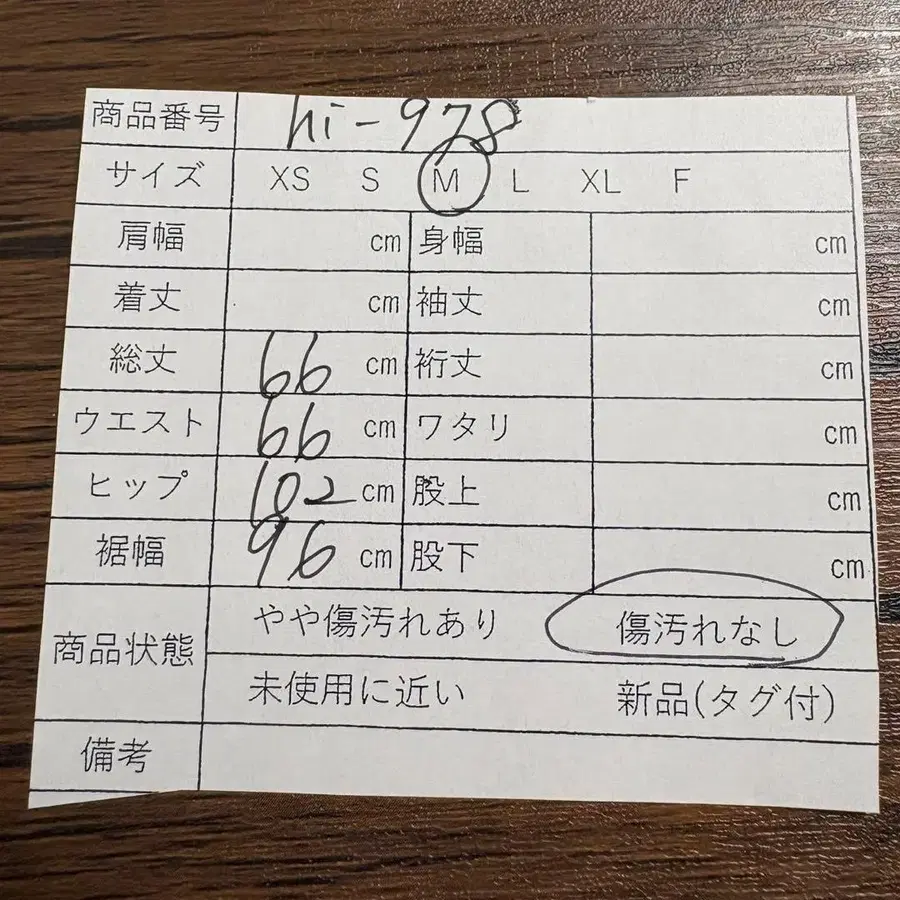 商品番号 hi-978
サイズ XS S M L XL F
肩幅 cm 身幅 cm
着丈 cm 袖丈 cm
総丈 66 cm 裄丈 cm
ウエスト 66 cm ワタリ cm
ヒップ 102 cm 股上 cm
裾幅 96 cm 股下 cm
商品状態 やや傷汚れあり 傷汚れなし
未使用に近い 新品(タグ付)
備考